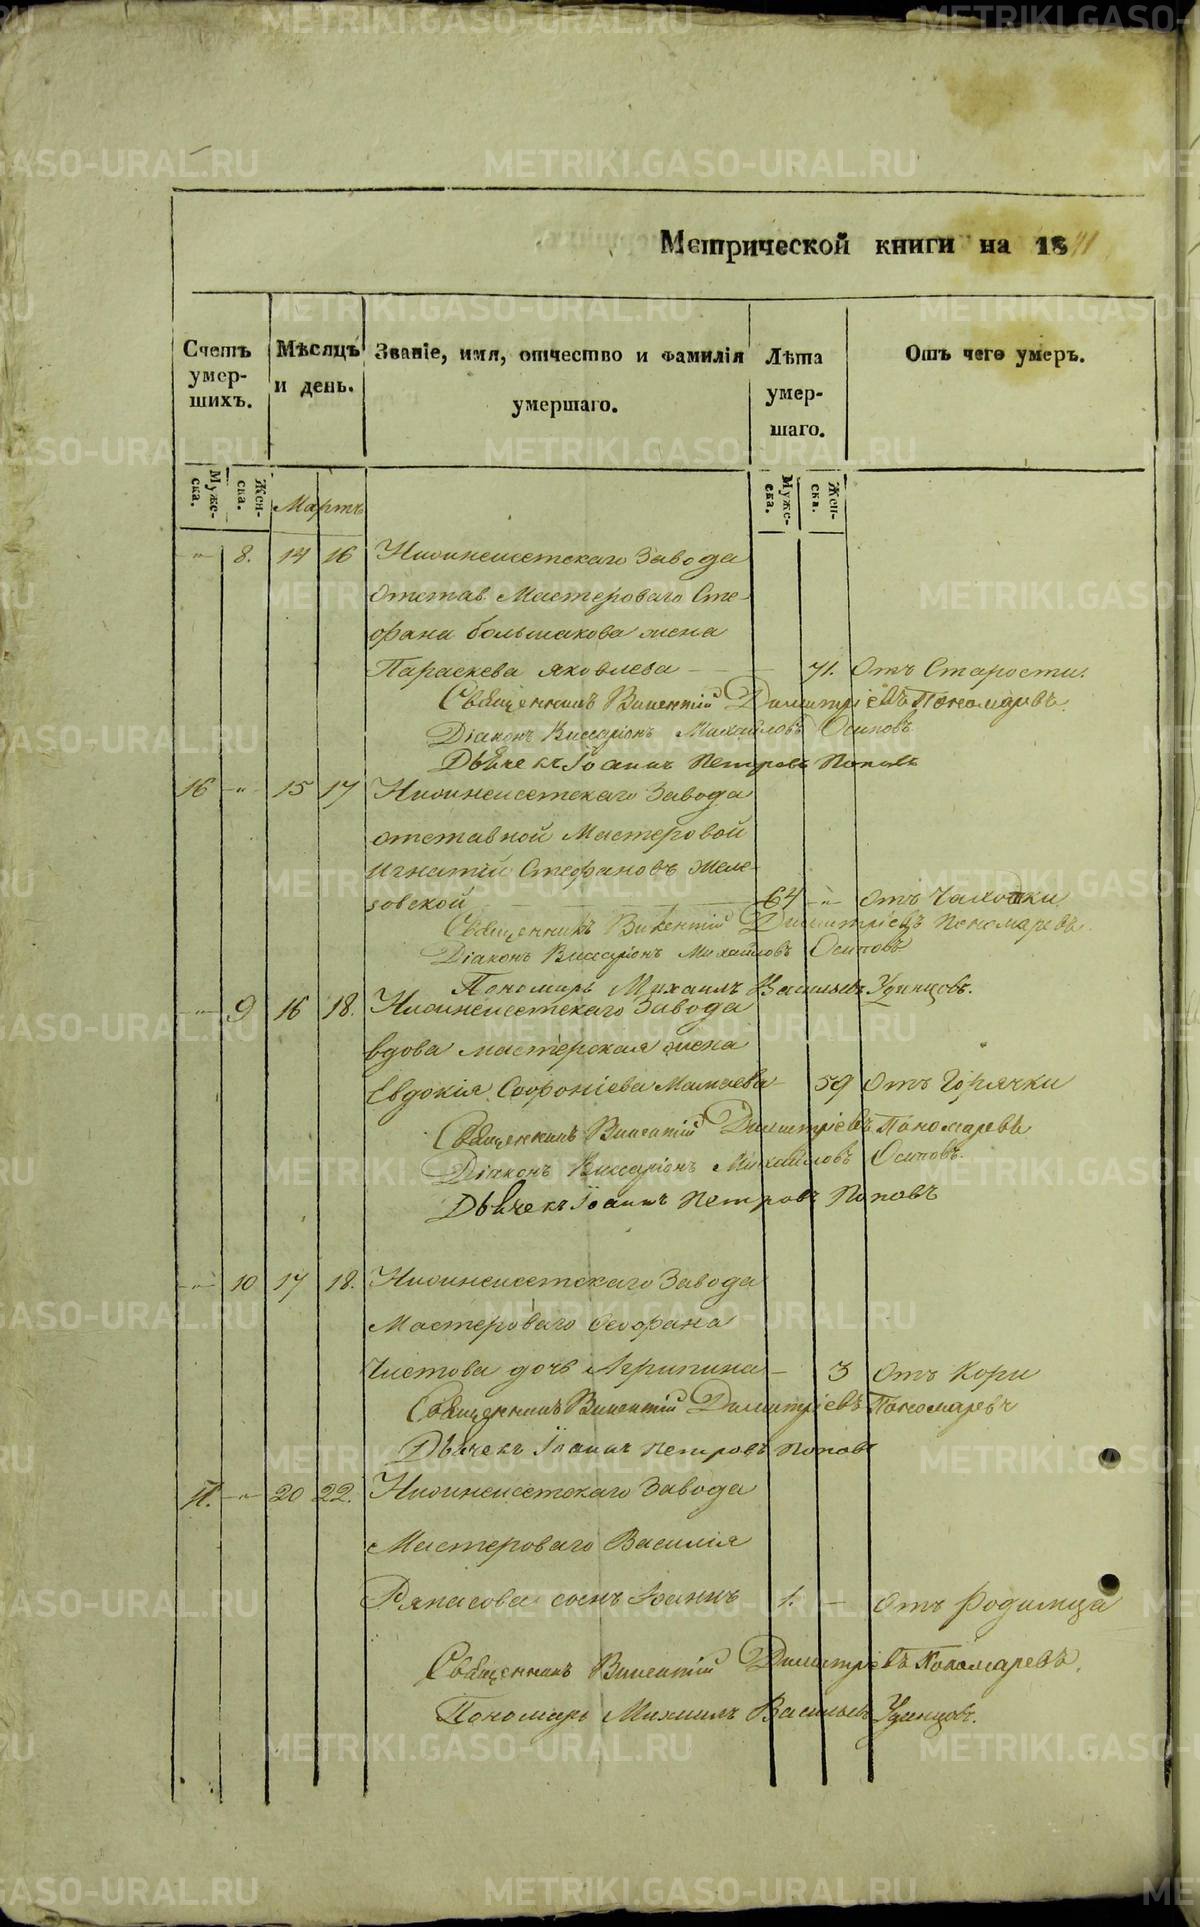 Метрической книги на 1841
Счетъ умер- шихъ.
Мѣсяцъ и день.
Званіе, имя, отчество и фамилія умершаго.
Лѣта умер- шаго.
Отъ чего умеръ.
Муже- ска.
Жен- ска.
Мартъ
Муже- ска.
Жен- ска.
" 8. 14 16 Нижнеисетскаго Завода
отстав. Мастероваго Сте-
фана Большакова жена
Параскева Яковлева — 71. Отъ Старости.
Священникъ Викентій Димитріевъ Пономаревъ.
Діаконъ Виссаріонъ Михайловъ Осиповъ
Дьячекъ Іоаннъ Петровъ Поповъ
16 " 15 17 Нижнеисетскаго Завода
отставной Мастеровой
Игнатій Стефановъ Желе-
зовской — 64 " Отъ Чахотки
Священникъ Викентій Димитріевъ Пономаревъ.
Діаконъ Виссаріонъ Михайловъ Осиповъ
Пономарь Михаилъ Васильевъ Удинцовъ.
" 9 16 18. Нижнеисетскаго Завода
вдова мастерская жена
Евдокія Софроніева Мамаева — 59 Отъ Горячки
Священникъ Викентій Димитріевъ Пономаревъ
Діаконъ Виссаріонъ Михайловъ Осиповъ.
Дьячекъ Іоаннъ Петровъ Поповъ
" 10 17 18. Нижнеисетскаго Завода
Мастероваго Ѳеофана
Чистова дочь Агрипина — 3 Отъ Кори
Священникъ Викентій Димитріевъ Пономаревъ
Дьячекъ Іоаннъ Петровъ Поповъ
17. " 20 22. Нижнеисетскаго Завода
Мастероваго Василія
сынъ Іоаннъ 1. — Отъ Родимца
Священникъ Викентій Димитріевъ Пономаревъ.
Пономарь Михаилъ Васильевъ Удинцовъ.
METRIKI.GASO-URAL.RU